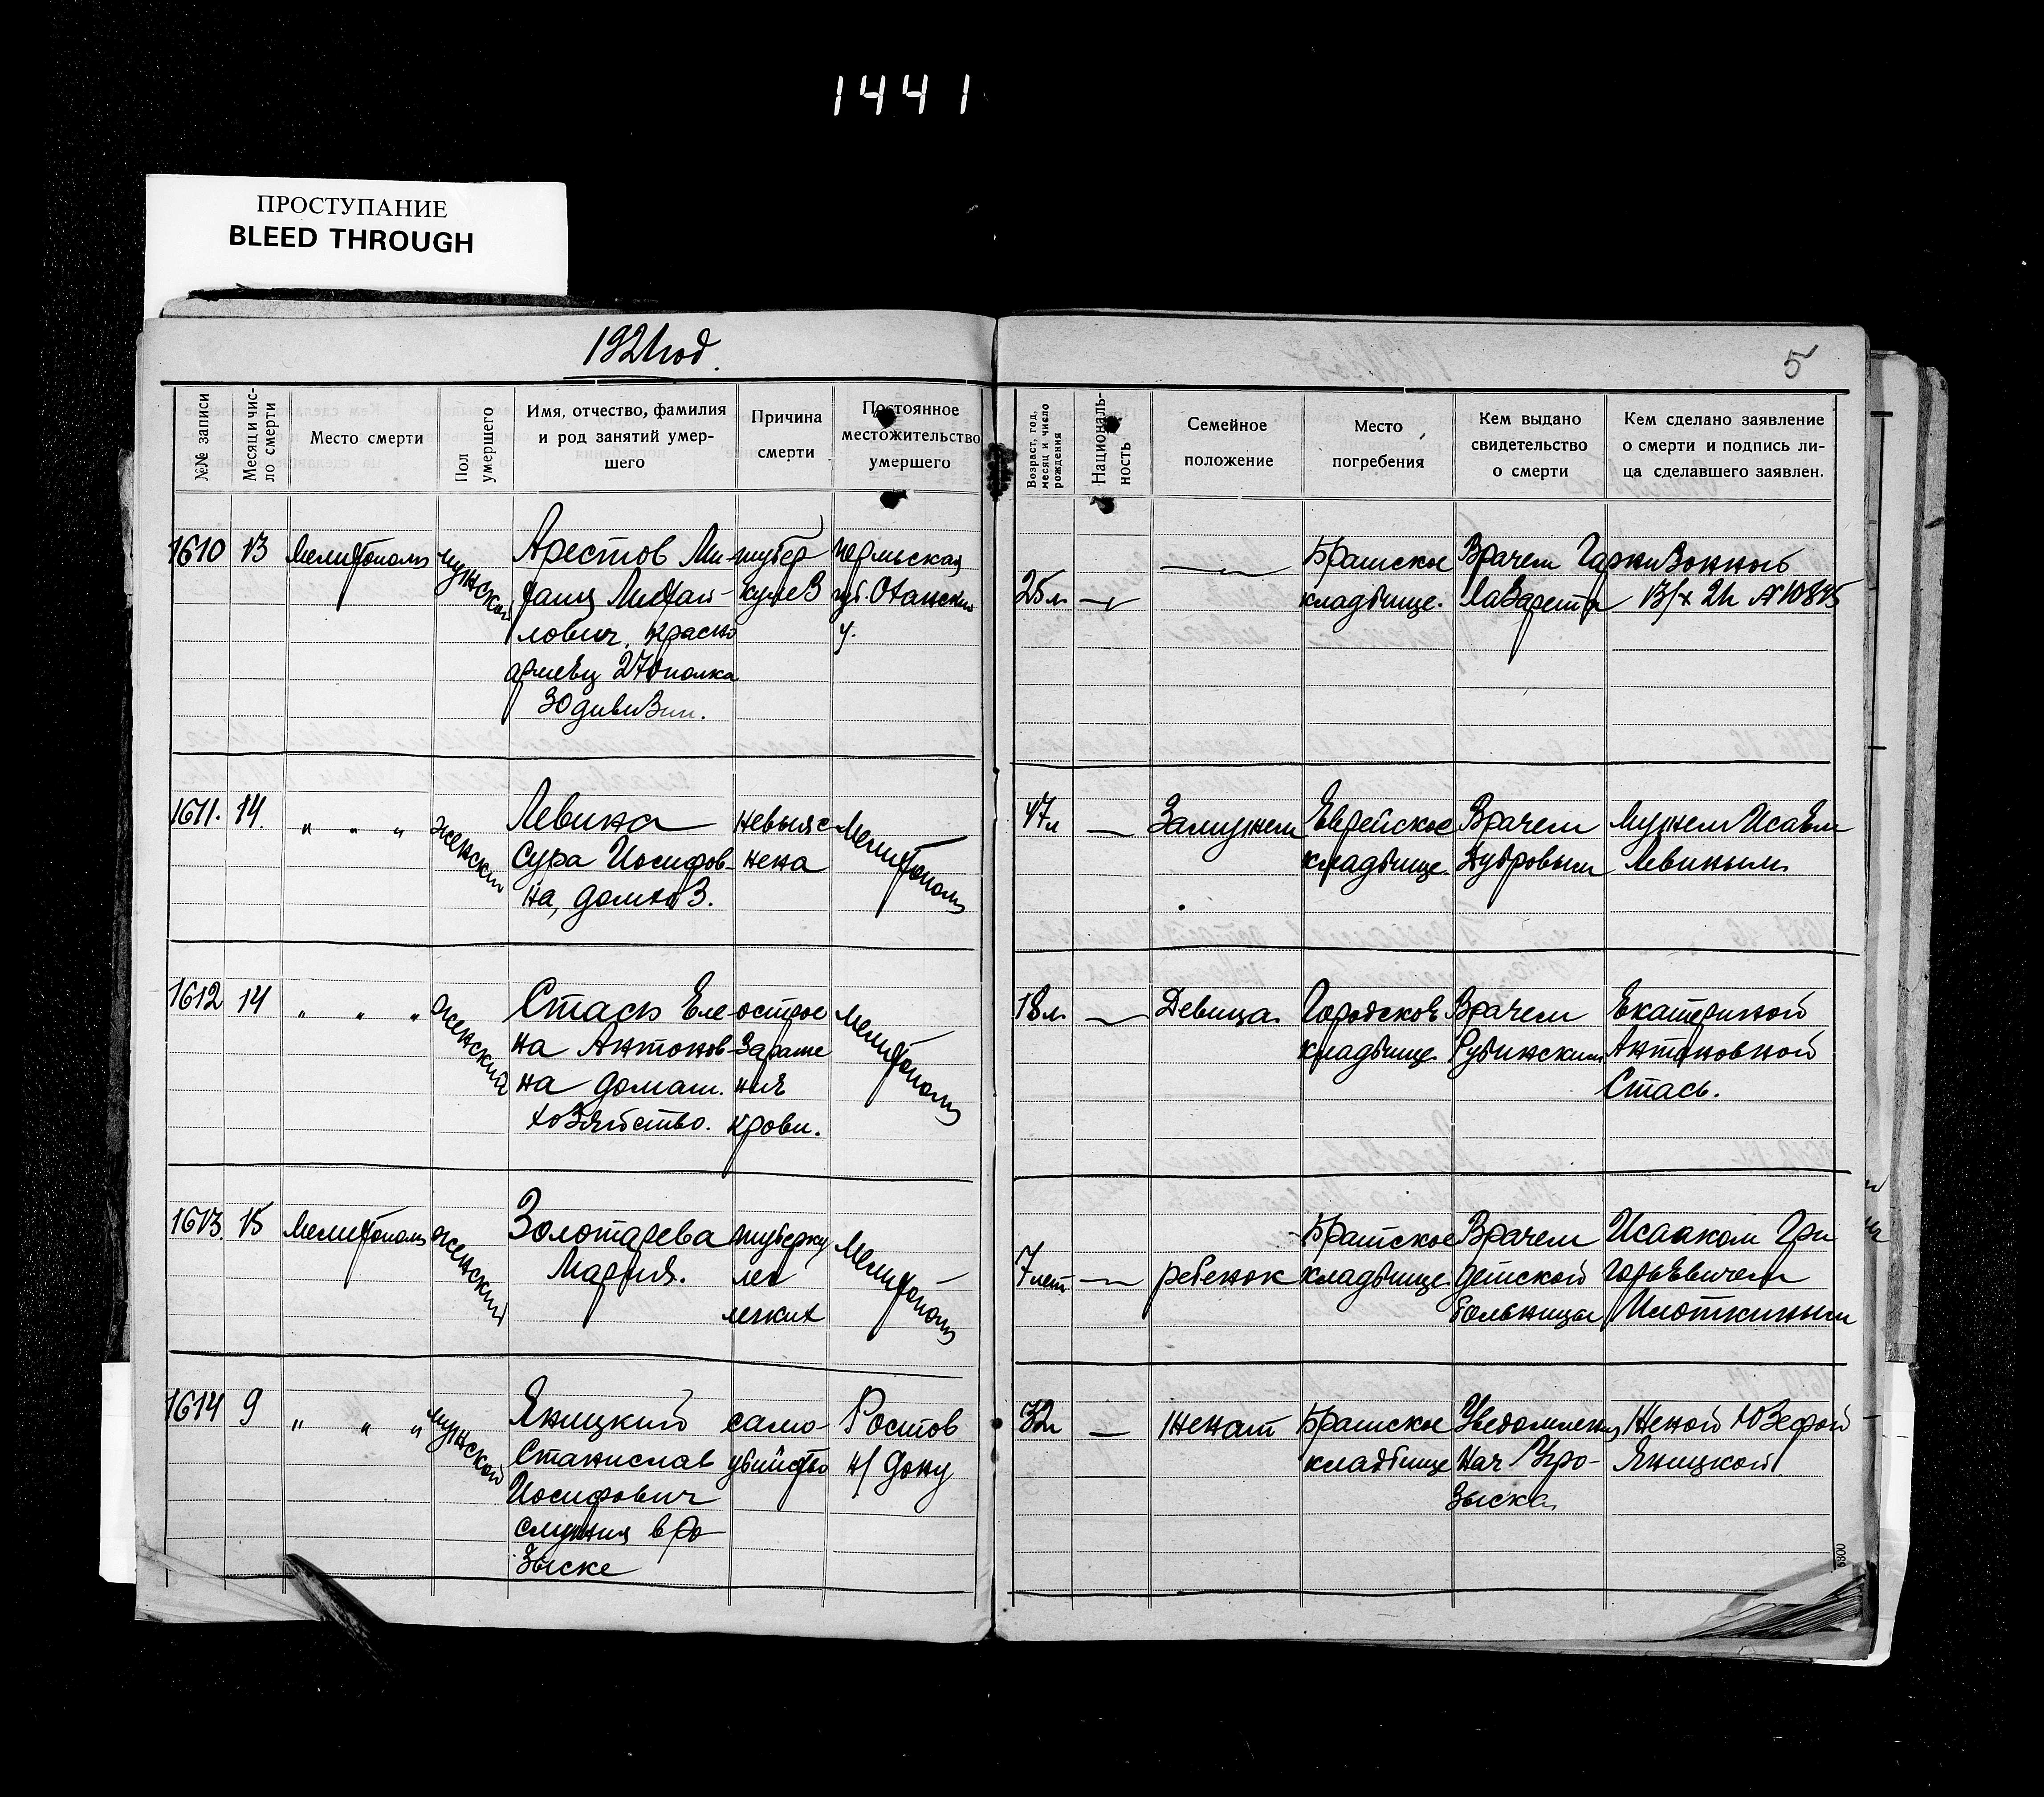 1441
ПРОСТУПАНИЕ
BLEED THROUGH
1921 год.
5
№№ записи
Месяц и чис-
ло смерти
Место смерти
Пол
умершего
Имя, отчество, фамилия
и род занятий умер-
шего
Причина
смерти
Постоянное
местожительство
умершего
Возраст, год,
месяц и число
рождения
Националь-
ность
Семейное
положение
Место
погребения
Кем выдано
свидетельство
о смерти
Кем сделано заявление
о смерти и подпись ли-
ца сделавшего заявлен.
1610 13 Мелитополь мужской
Арестов Ми-
Михай-
лович, красно
армеец 270 полка
30 дивизии.
тубер
кулез
Пермская
губ.
у.
25 л.
Братское
кладбище.
Врачем Гарнизонного
Лазарета 13/X 21 № 10875
1611. 14. " " " женский
Левина
Сура Иосифов-
на, домхоз.
невыяс-
нена
Мелитополь
47 л
Замужем
Еврейское
кладбище.
Врачем
Дубровым
Мужем Исаем
Левиным
1612 14 " " " женский
Стась Еле-
на Антонов-
на домаш.
хозяйство.
острое
зараже
ния
крови.
Мелитополь
18 л.
Девица.
Городское
кладбище.
Врачем
Рубинским
Екатериной
Антоновной
Стась.
1613. 15 Мелитополь женский
Золотарева
Мария.
туберку
лез
легких
Мелитополь
7 лет
ребенок
Братское
кладбище.
Врачем
детской
больницы
Исааком Гри
горьевичем
1614 9 " " " мужской
Яницкий
Станислав
Иосифович
служил в ро
зыске
само-
убийство
Ростов
н/Дону
32 л
женат
Братское
кладбище
Уведомление
Нач Угро-
зыска
Женой Юзефой
Яницкой
6800